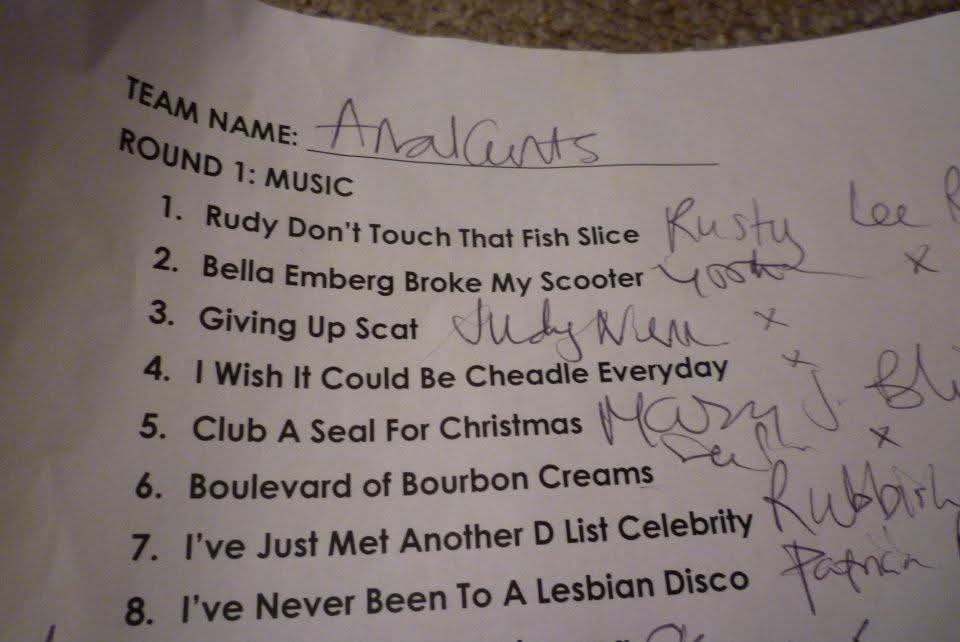 TEAM NAME: Anal Cunts
ROUND 1: MUSIC
1. Rudy Don't Touch That Fish Slice Rusty Lee R
2. Bella Emberg Broke My Scooter x
3. Giving Up Scat Judy x
4. I Wish It Could Be Cheadle Everyday x
5. Club A Seal For Christmas Mary J. Bli
6. Boulevard of Bourbon Creams x
7. I've Just Met Another D List Celebrity Rubbish
8. I've Never Been To A Lesbian Disco Patricia